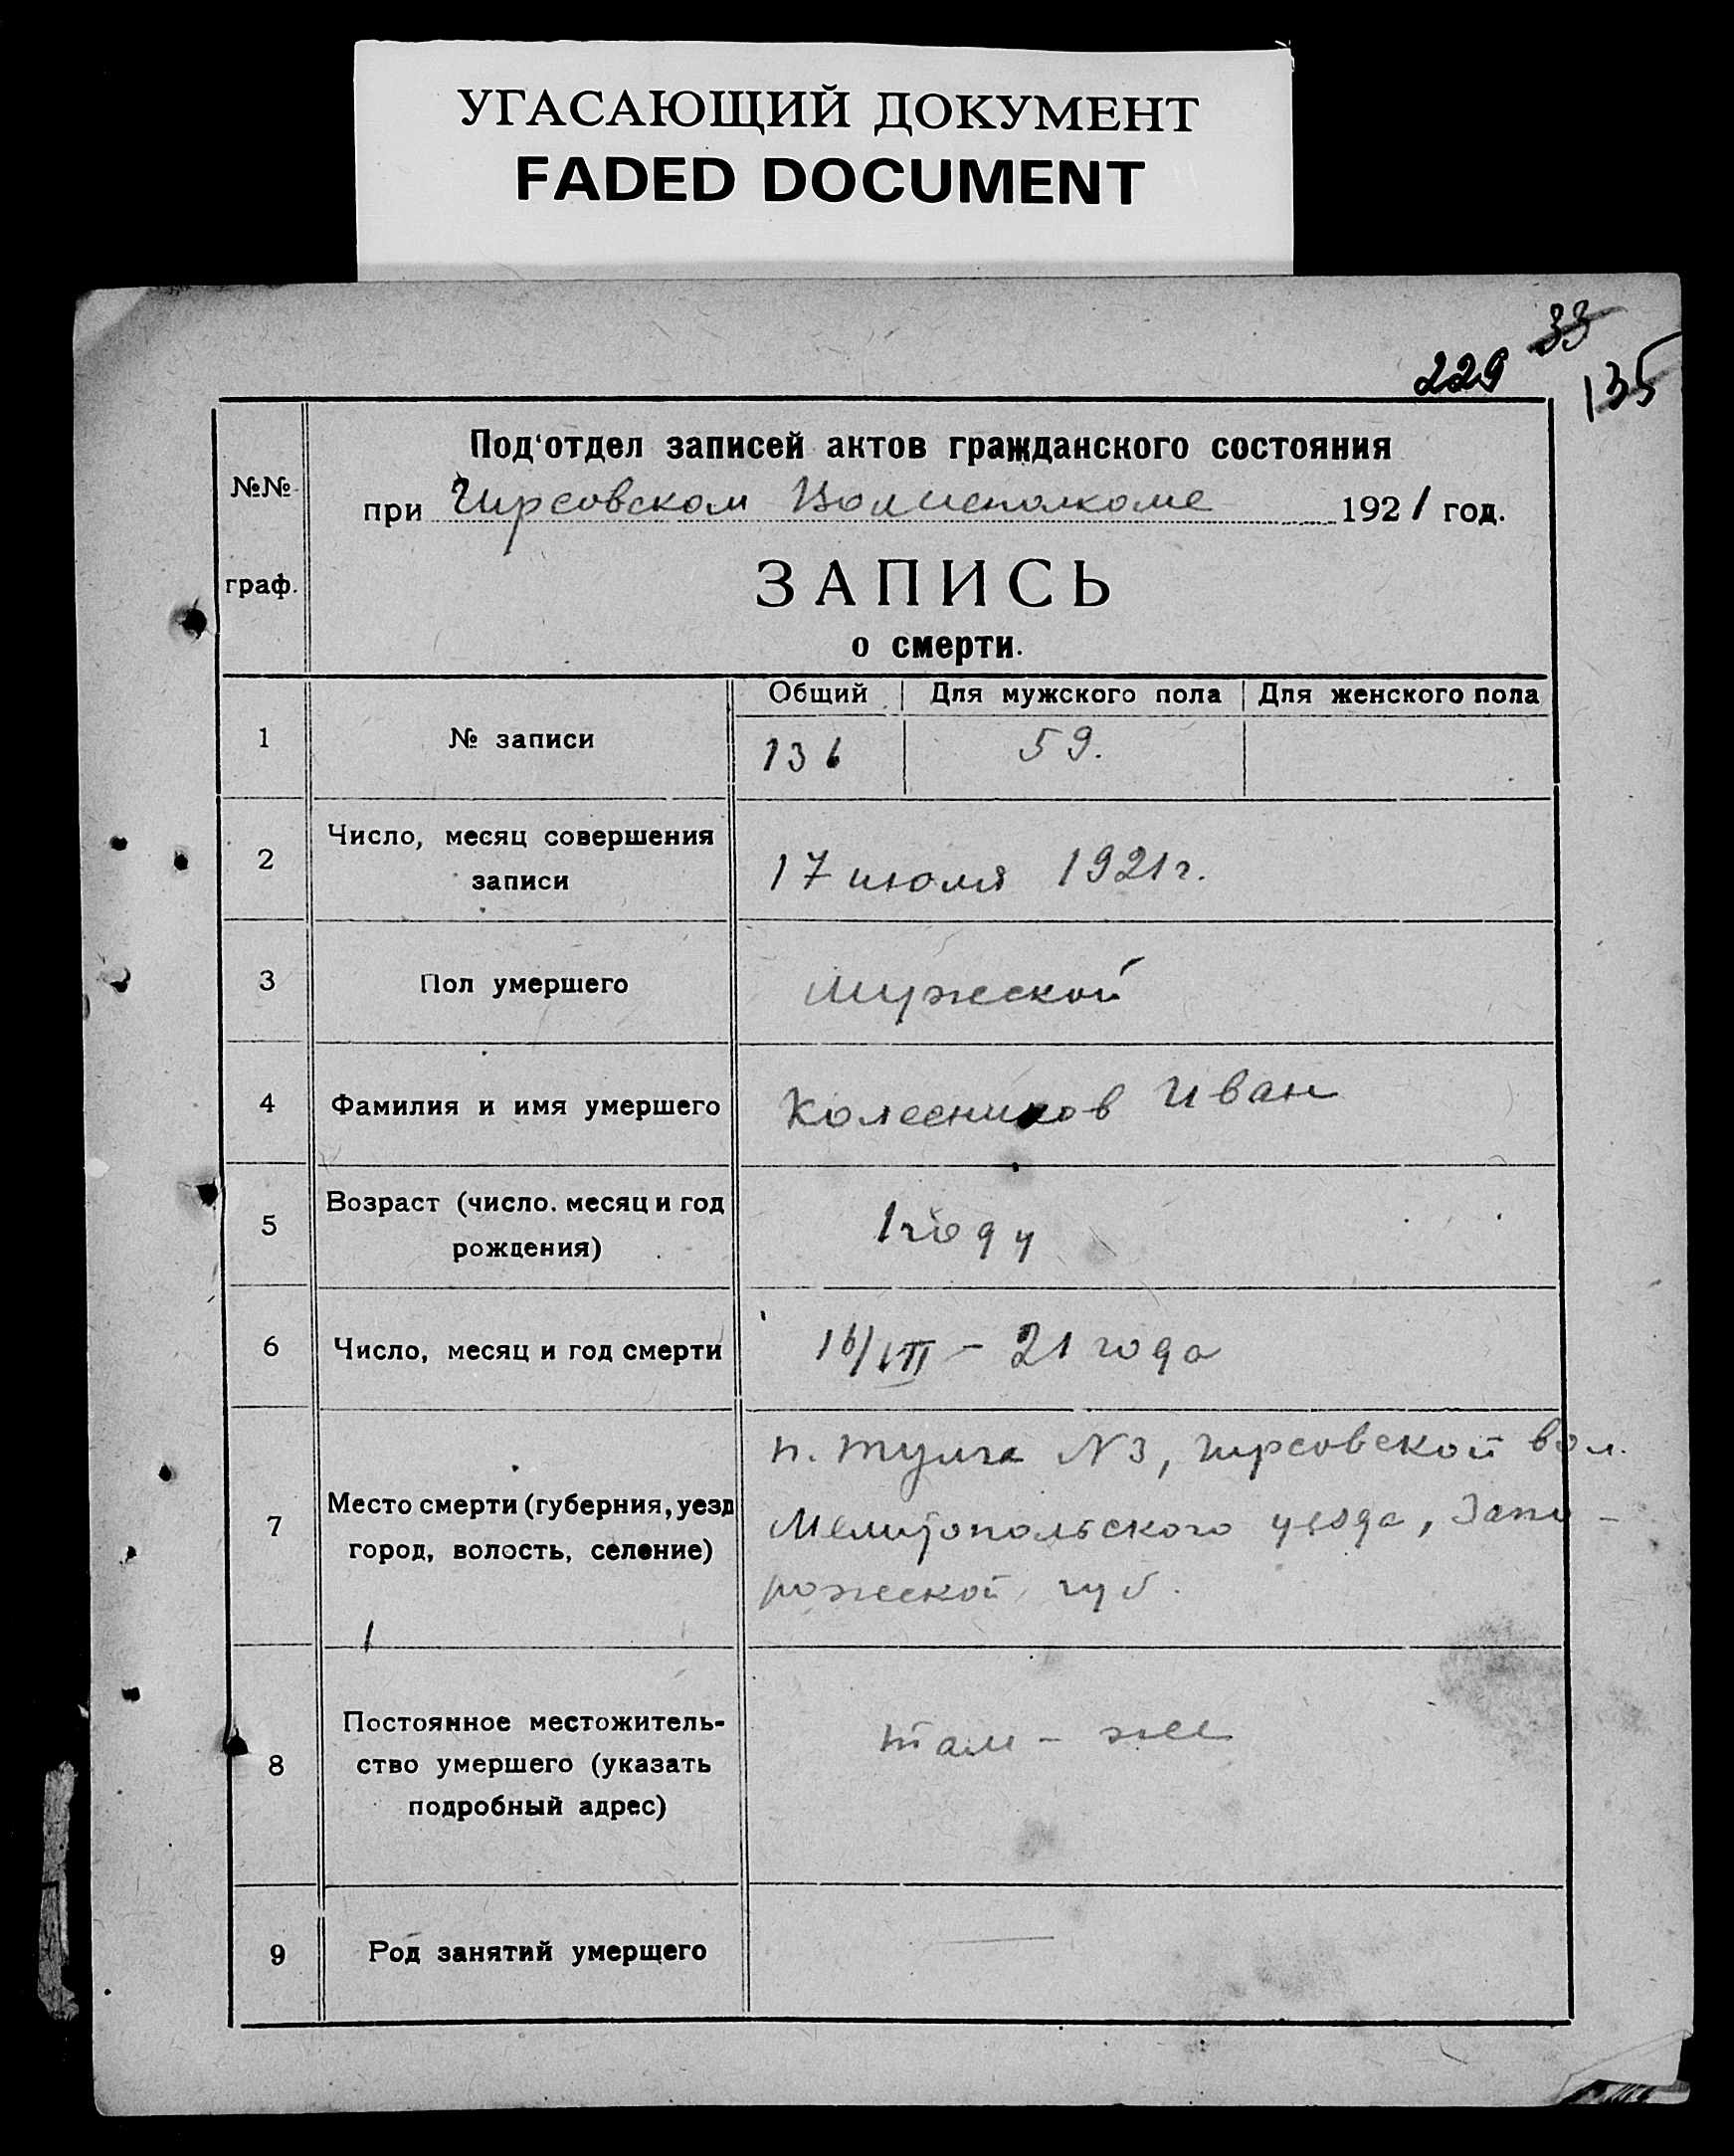 УГАСАЮЩИЙ ДОКУМЕНТ
FADED DOCUMENT
33
229
135
№№ граф.
Под'отдел записей актов гражданского состояния
при Гирсовском Волисполкоме 1921 год.
ЗАПИСЬ
о смерти.
Общий Для мужского пола Для женского пола
1 № записи 136 59.
2 Число, месяц совершения
записи 17 июля 1921 г.
3 Пол умершего мужской
4 Фамилия и имя умершего Колесников Иван
5 Возраст (число. месяц и год
рождения) 1 году
6 Число, месяц и год смерти 16/VII - 21 года
7 Место смерти (губерния, уезд
город, волость, селение)
п. Тулга N3, Гирсовской вол.
Мелитопольского уезда, Запо-
рожской губ.
8 Постоянное местожитель-
ство умершего (указать
подробный адрес)
там - же
9 Род занятий умершего —